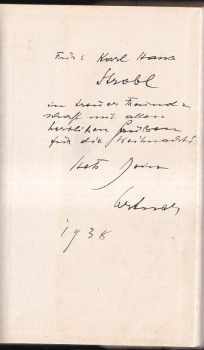 Für: Karl Hans
Strobl
in treuer Freund-
schaft mit allen
herzlichen
für die Weihnacht
stets Dein
1938